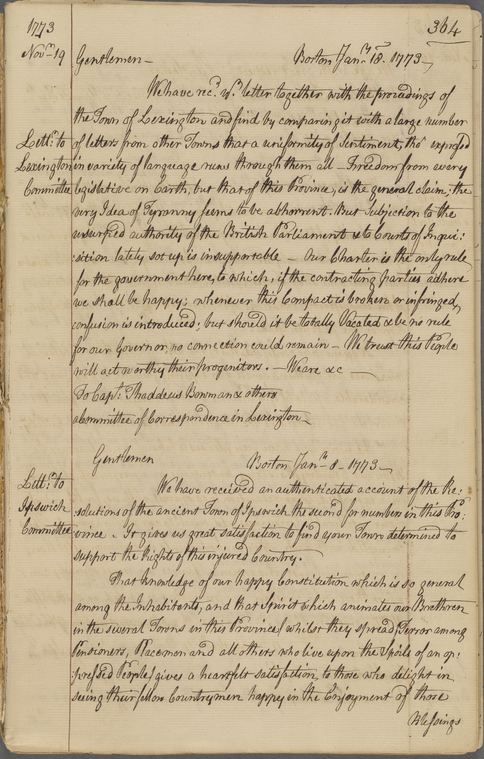 1773
364
Novr. 19
Gentlemen— Boston Jany. 18. 1773—
We have recd. yr. letter together with the proceedings of
the Town of Lexington and find by comparing it with a large number
Lettr. to
of letters from other Towns that a uniformity of Sentiment, tho' expressed
Lexington
in variety of language runs through them all — Freedom from every
Committee
legislative on Earth, but that of this Province, is the general claim; the
very Idea of Tyranny seems to be abhorrent. But Subjection to the
usurped authority of the British Parliament & to Courts of Inqui:
sition lately set up is insupportable — Our Charter is the only rule
for the government here, to which, if the contracting parties adhere
we shall be happy; whenever this Compact is broken or infringed,
confusion is introduced; but should it be totally Vacated & be no rule
for our Governor, no connection could remain — We trust this People
will act worthy their progenitors. — We are &c —
To Capt. Thaddeus Bowman & others
a Committee of Correspondence in Lexington—
Gentlemen Boston Jany. 8 — 1773—
Lettr. to
We have received an authenticated account of the Re:
Ipswich
solutions of the ancient Town of Ipswich the second for number in this Pro:
Committee
vince. It gives us great satisfaction to find your Town determined to
support the Rights of this injured Country.
That knowledge of our happy Constitution which is so general
among the Inhabitants, and that Spirit which animates our Brethren
in the several Towns in this Province (whilst they spread Terror among
Pensioners, Placemen and all others who live upon the Spoils of an op:
pressed People) gives a heartfelt satisfaction to those who delight in
seeing their fellow Countrymen happy in the Enjoyment of those
Blessings